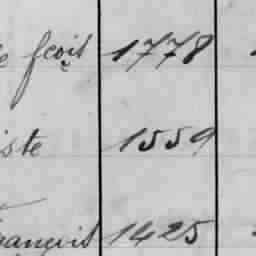 fçois 1778
iste 1559
françois 1425